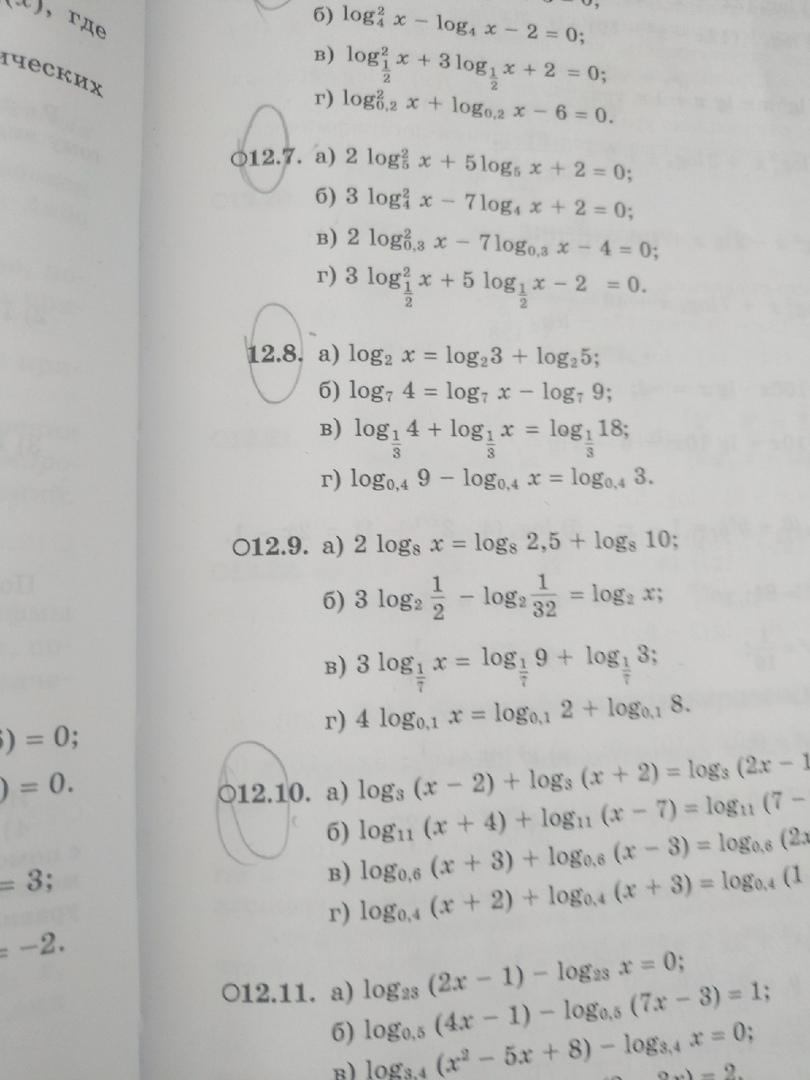 ), где
ических
б) log₄² x − log₄ x − 2 = 0;
в) log²_{1/2} x + 3 log_{1/2} x + 2 = 0;
г) log²_{0,2} x + log_{0,2} x − 6 = 0.
○12.7. а) 2 log₅² x + 5 log₅ x + 2 = 0;
б) 3 log₄² x − 7 log₄ x + 2 = 0;
в) 2 log²_{0,3} x − 7 log_{0,3} x − 4 = 0;
г) 3 log²_{1/2} x + 5 log_{1/2} x − 2 = 0.
12.8. а) log₂ x = log₂ 3 + log₂ 5;
б) log₇ 4 = log₇ x − log₇ 9;
в) log_{1/3} 4 + log_{1/3} x = log_{1/3} 18;
г) log_{0,4} 9 − log_{0,4} x = log_{0,4} 3.
○12.9. а) 2 log₈ x = log₈ 2,5 + log₈ 10;
б) 3 log₂ 1/2 − log₂ 1/32 = log₂ x;
в) 3 log_{1/7} x = log_{1/7} 9 + log_{1/7} 3;
г) 4 log_{0,1} x = log_{0,1} 2 + log_{0,1} 8.
) = 0;
) = 0.
= 3;
= −2.
○12.10. а) log₃ (x − 2) + log₃ (x + 2) = log₃ (2x − 1
б) log₁₁ (x + 4) + log₁₁ (x − 7) = log₁₁ (7 −
в) log_{0,6} (x + 3) + log_{0,6} (x − 3) = log_{0,6} (2x
г) log_{0,4} (x + 2) + log_{0,4} (x + 3) = log_{0,4} (1
○12.11. а) log₂₃ (2x − 1) − log₂₃ x = 0;
б) log_{0,5} (4x − 1) − log_{0,5} (7x − 3) = 1;
в) log_{3,4} (x² − 5x + 8) − log_{3,4} x = 0;